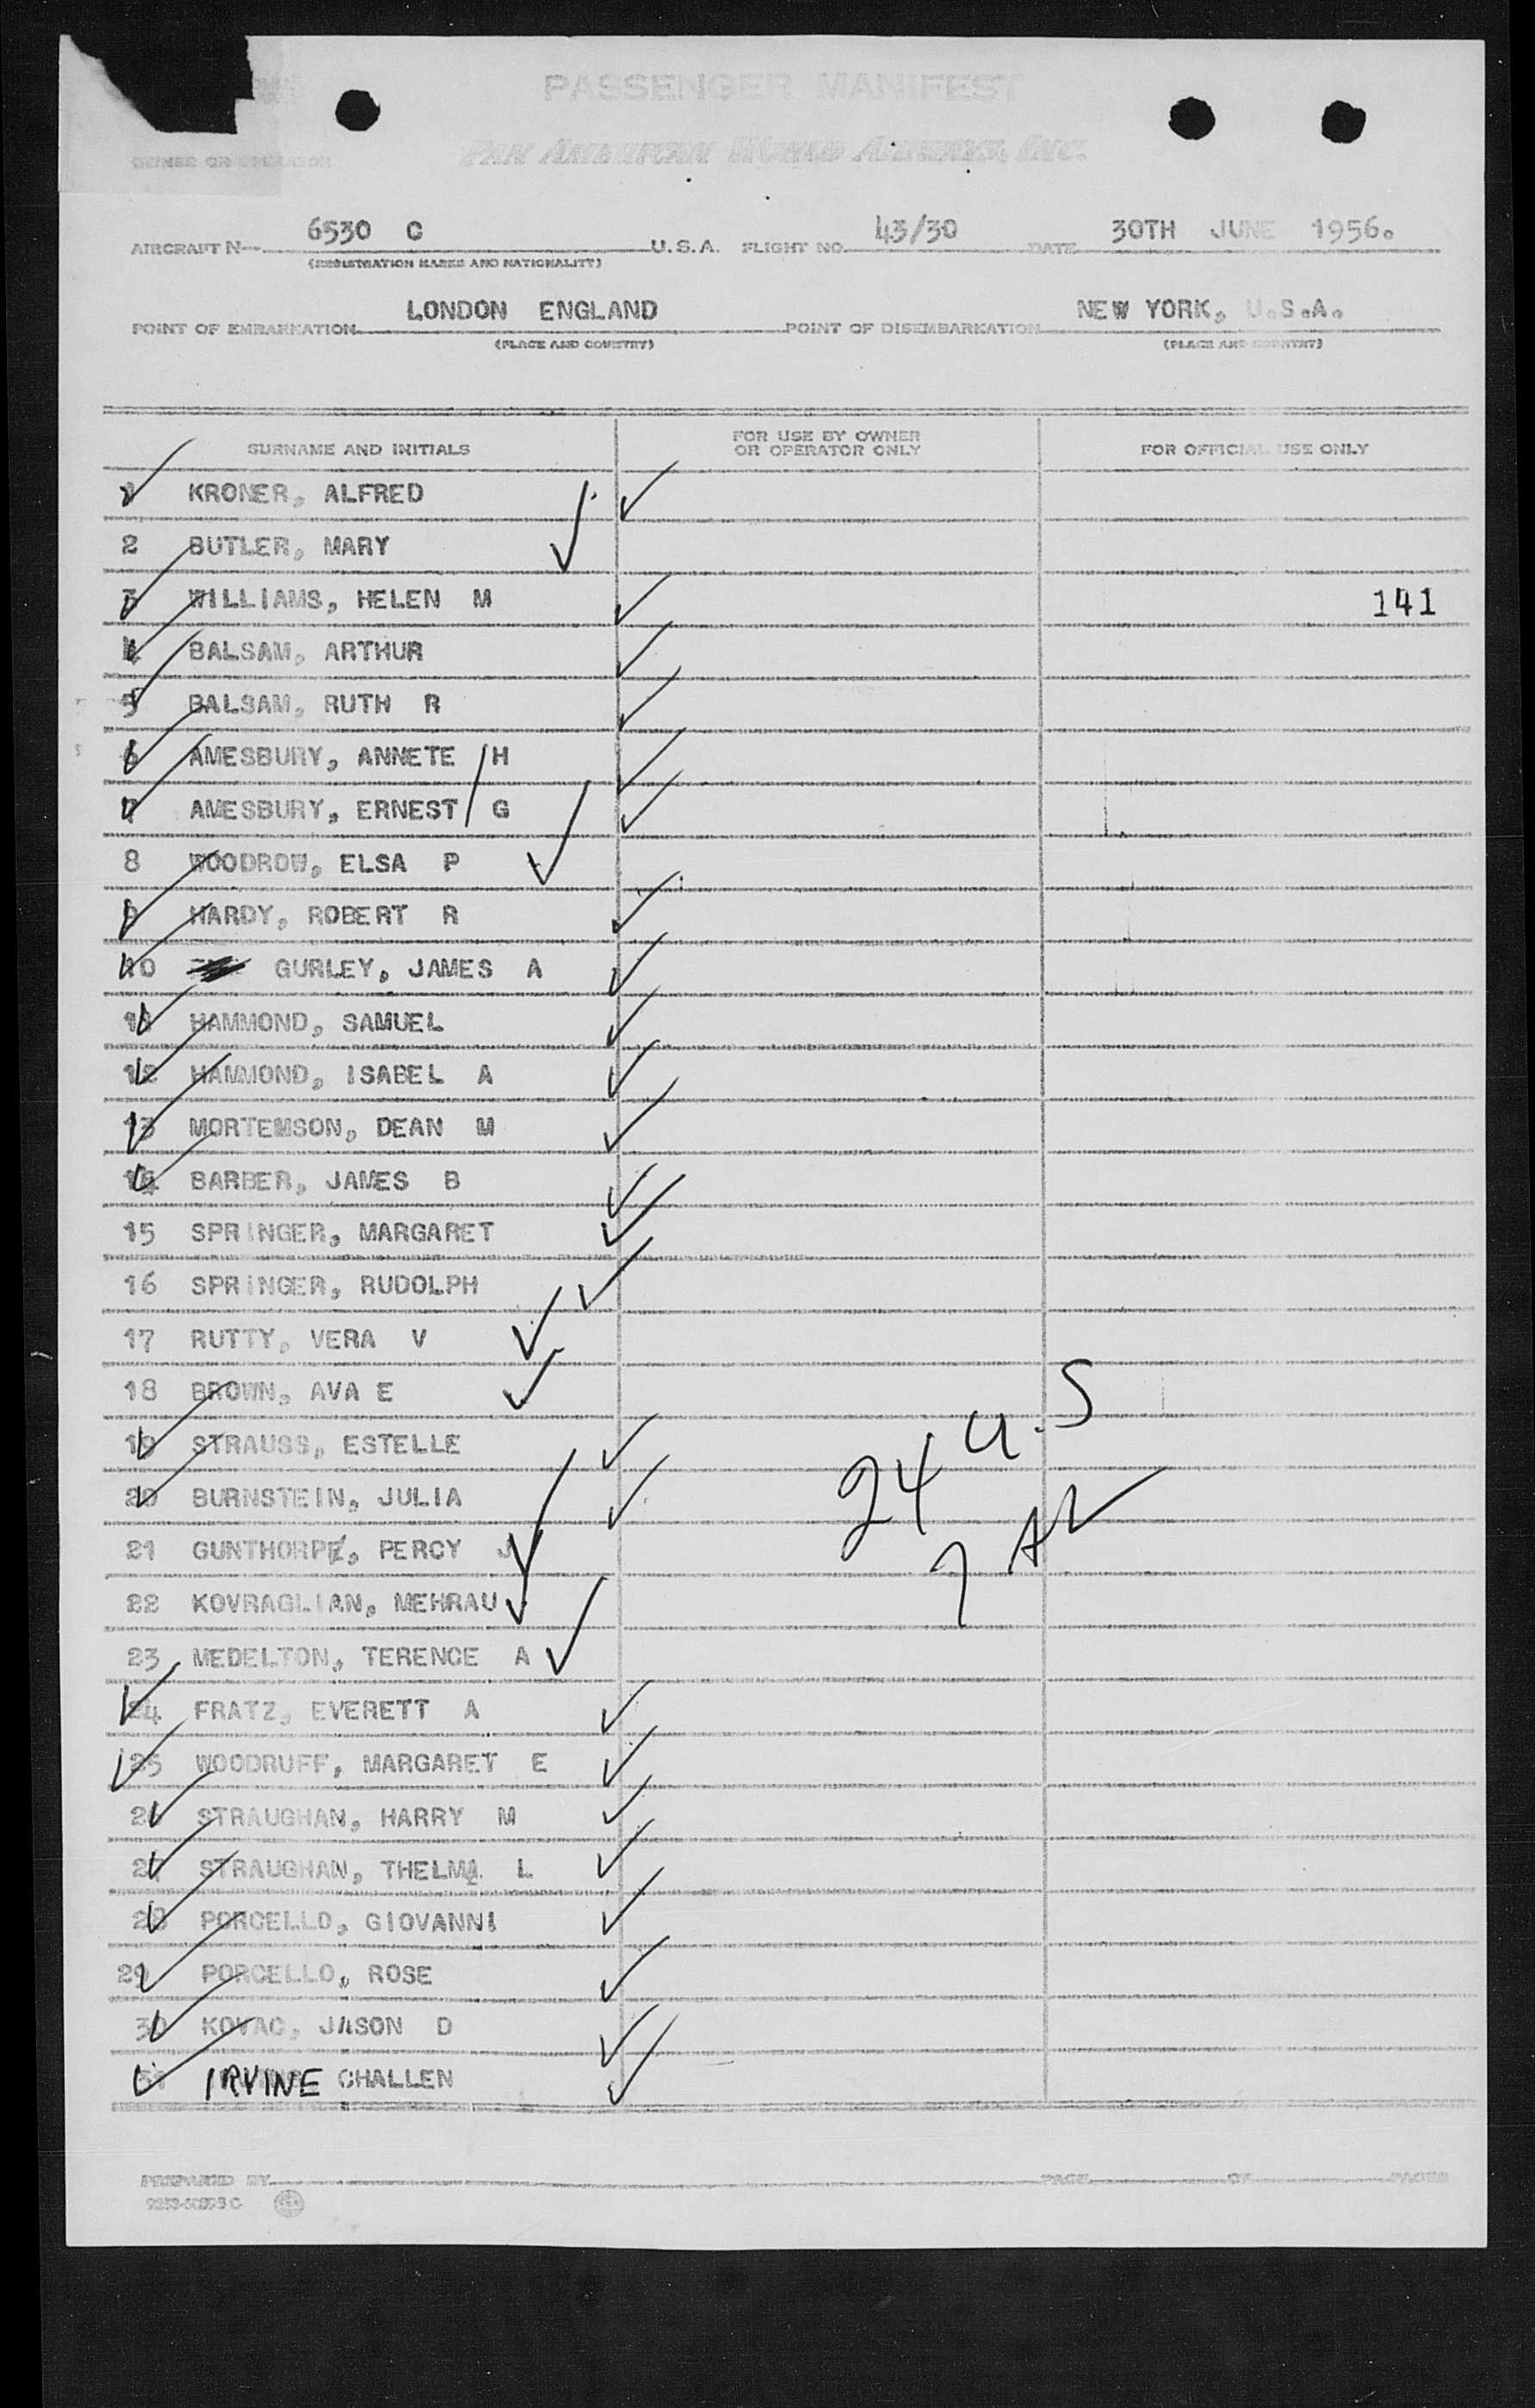 PASSENGER MANIFEST
OWNER OR OPERATOR PAN AMERICAN WORLD AIRWAYS, INC.
AIRCRAFT N 6530 C U.S.A. FLIGHT NO. 43/30 DATE 30TH JUNE 1956.
(REGISTRATION MARKS AND NATIONALITY)
POINT OF EMBARKATION LONDON ENGLAND POINT OF DISEMBARKATION NEW YORK, U.S.A.
(PLACE AND COUNTRY) (PLACE AND COUNTRY)
SURNAME AND INITIALS FOR USE BY OWNER OR OPERATOR ONLY FOR OFFICIAL USE ONLY
1 KRONER, ALFRED
2 BUTLER, MARY
3 WILLIAMS, HELEN M 141
4 BALSAM, ARTHUR
5 BALSAM, RUTH R
6 AMESBURY, ANNETE H
7 AMESBURY, ERNEST G
8 WOODROW, ELSA P
9 HARDY, ROBERT R
10 GURLEY, JAMES A
11 HAMMOND, SAMUEL
12 HAMMOND, ISABEL A
13 MORTEMSON, DEAN M
14 BARBER, JAMES B
15 SPRINGER, MARGARET
16 SPRINGER, RUDOLPH
17 RUTTY, VERA V
18 BROWN, AVA E
19 STRAUSS, ESTELLE
24 U.S
20 BURNSTEIN, JULIA
21 GUNTHORPE, PERCY J
7 AL
22 KOVRAGLIAN, MEHRAU
23 MEDELTON, TERENCE A
24 FRATZ, EVERETT A
25 WOODRUFF, MARGARET E
26 STRAUGHAN, HARRY M
27 STRAUGHAN, THELMA L
28 PORCELLO, GIOVANNI
29 PORCELLO, ROSE
30 KOVAC, JASON D
31 IRVINE CHALLEN
PREPARED BY PAGE OF PAGES